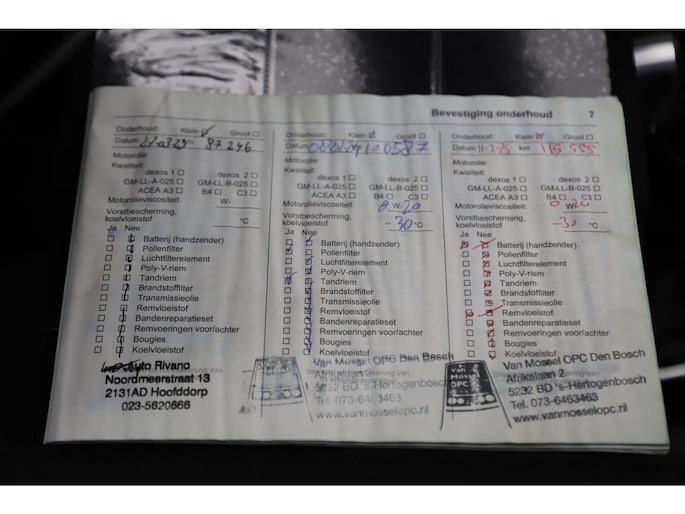 Bevestiging onderhoud 7
Onderhoud: Klein Groot
Datum 27-03-23 km 87 246
Motorolie
Kwaliteit:
dexos 1 dexos 2
GM-LL-A-025 GM-LL-B-025
ACEA A3 B4 C3
Motorolieviscositeit: W-
Vorstbescherming, koelvloeistof °C
Ja Nee
Batterij (handzender)
Pollenfilter
Luchtfilterelement
Poly-V-riem
Tandriem
Brandstoffilter
Transmissieolie
Remvloeistof
Bandenreparatieset
Remvoeringen voor/achter
Bougies
Koelvloeistof
Auto Rivano
Noordmeerstraat 13
2131AD Hoofddorp
023-5620666
Onderhoud: Klein Groot
Datum km 100587
Motorolie
Kwaliteit:
dexos 1 dexos 2
GM-LL-A-025 GM-LL-B-025
ACEA A3 B4 C3
Motorolieviscositeit: 0 W-20
Vorstbescherming, koelvloeistof -30 °C
Ja Nee
Batterij (handzender)
Pollenfilter
Luchtfilterelement
Poly-V-riem
Tandriem
Brandstoffilter
Transmissieolie
Remvloeistof
Bandenreparatieset
Remvoeringen voor/achter
Bougies
Koelvloeistof
Van Mossel OPC Den Bosch
Afrikalaan 2
5232 BD 's-Hertogenbosch
Tel. 073-6463463
www.vanmosselopc.nl
Onderhoud: Klein Groot
Datum 11-2-25 km 115 555
Motorolie
Kwaliteit:
dexos 1 dexos 2
GM-LL-A-025 GM-LL-B-025
ACEA A3 B4 C3
Motorolieviscositeit: 0 W-20
Vorstbescherming, koelvloeistof -30 °C
Ja Nee
Batterij (handzender)
Pollenfilter
Luchtfilterelement
Poly-V-riem
Tandriem
Brandstoffilter
Transmissieolie
Remvloeistof
Bandenreparatieset
Remvoeringen voor/achter
Bougies
Koelvloeistof
van Mossel OPC
Van Mossel OPC Den Bosch
Afrikalaan 2
5232 BD 's-Hertogenbosch
Tel. 073-6463463
www.vanmosselopc.nl